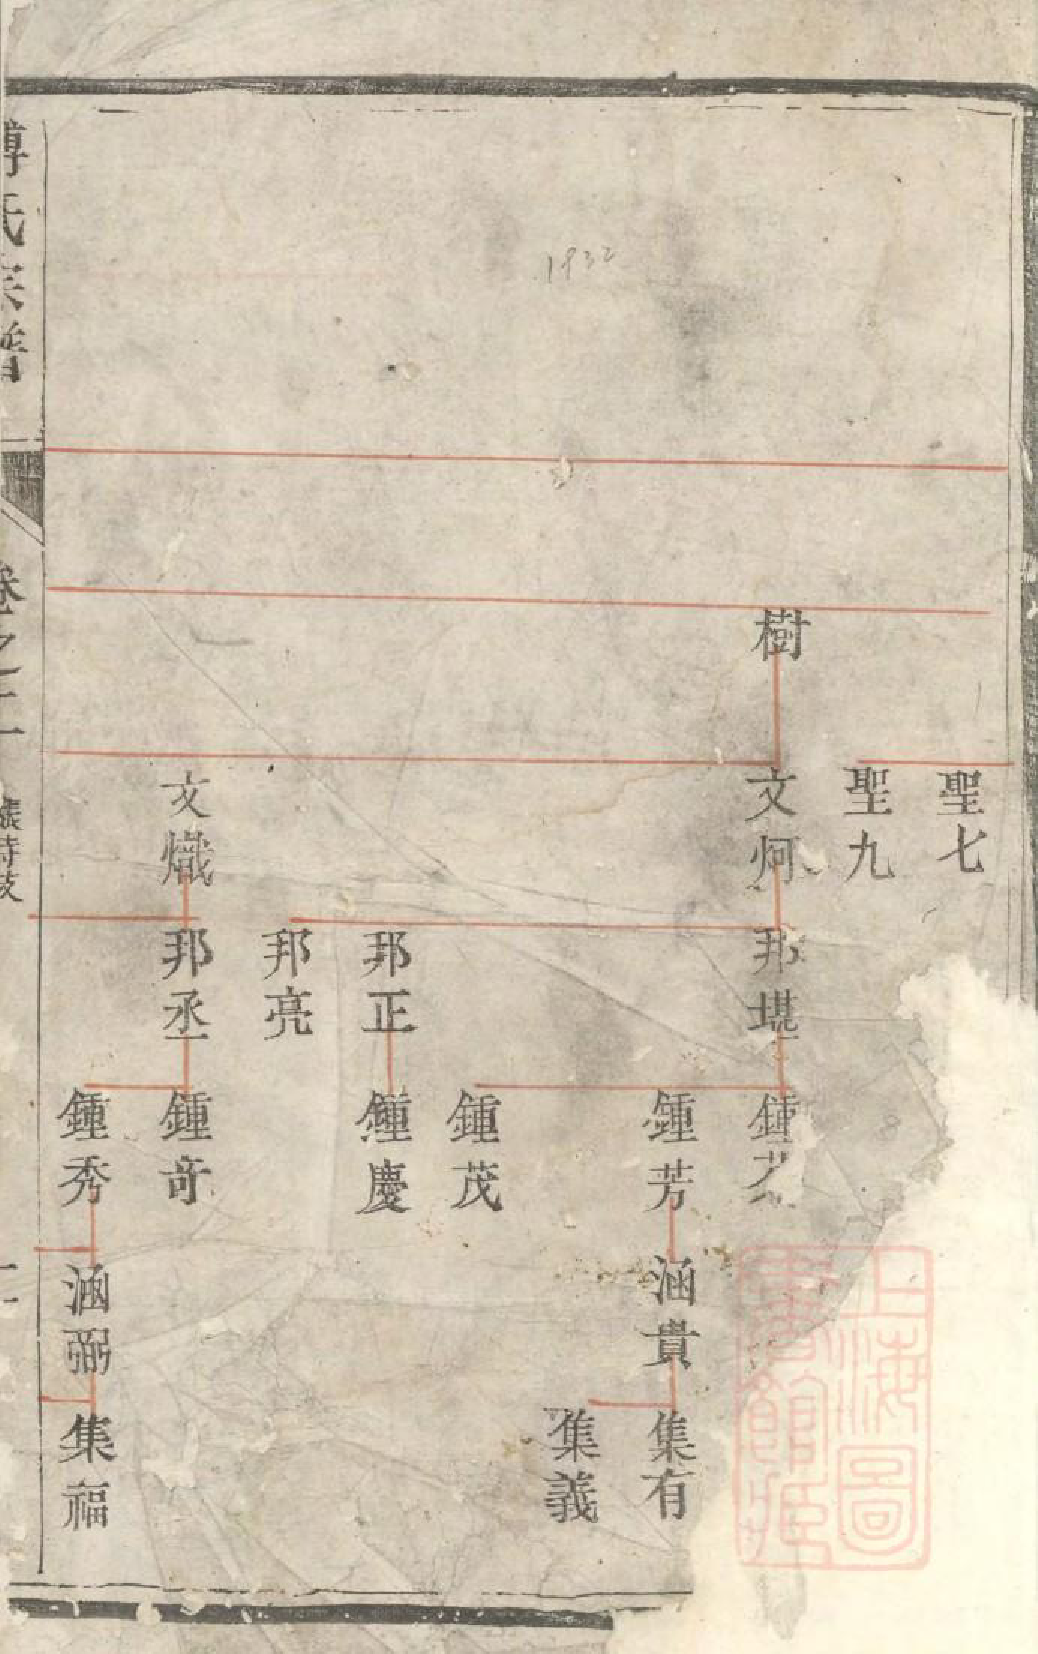 1932
樹
聖七
聖九
文炣
文熾
邦堪
邦正
邦亮
邦丞
鍾
鍾芳
鍾茂
鍾慶
鍾奇
鍾秀
涵貴
涵弼
集有
集義
集福
氏宗譜
卷之二
上海圖書館藏